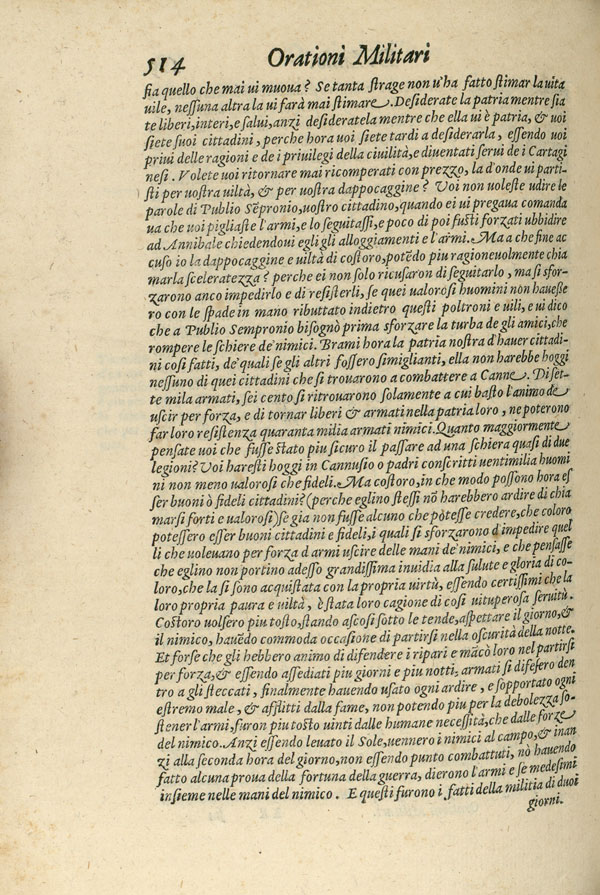 514 Orationi Militari
sia quello che mai ui muoua? Se tanta strage non u'ha fatto stimar la uita
uile, nessuna altra la ui farà mai stimare. Desiderate la patria mentre sia
te liberi, interi, e salui, anzi desideratela mentre che ella ui è patria, & uoi
siete suoi cittadini, perche hora uoi siete tardi a desiderarla, essendo uoi
priui delle ragioni e de i priuilegi della ciuilità, e diuentati serui de i Cartagi
nesi. Volete uoi ritornare mai ricomperati con prezzo, la d'onde ui parti-
sti per uostra uiltà, & per uostra dappocaggine? Voi non uoleste udire le
parole di Publio Sẽpronio, uostro cittadino, quando ei ui pregaua comanda
ua che uoi pigliaste l'armi, e lo seguitassi, e poco di poi fusti forzati ubbidire
ad Annibale chiedendoui egli gli alloggiamenti e l'armi. Ma a che fine ac
cuso io la dappocaggine e uiltà di costoro, potẽdo piu ragioneuolmente chia
marla sceleratezza? perche ei non solo ricusaron di seguitarlo, ma si sfor-
zarono anco impedirlo e di resisterli, se quei ualorosi huomini non hauesse
ro con le spade in mano ributtato indietro questi poltroni e uili, e ui dico
che a Publio Sempronio bisognò prima sforzare la turba de gli amici, che
rompere le schiere de' nimici. Brami hora la patria nostra d'hauer cittadi-
ni cosi fatti, de' quali se gli altri fossero simiglianti, ella non harebbe hoggi
nessuno di quei cittadini che si trouarono a combattere a Canne. Di set-
te mila armati, sei cento si ritrouarono solamente a cui basto l'animo de
uscir per forza, e di tornar liberi & armati nella patria loro, ne poterono
far loro resistenza quaranta milia armati nimici. Quanto maggiormente
pensate uoi che fusse stato piu sicuro il passare ad una schiera quasi di due
legioni? Voi haresti hoggi in Cannusio o padri conscritti uentimilia huomi
ni non meno ualorosi che fideli. Ma costoro, in che modo possono hora es
ser buoni ò fideli cittadini? (perche eglino stessi nõ harebbero ardire di chia
marsi forti e ualorosi) se gia non fusse alcuno che potesse credere, che coloro
potessero esser buoni cittadini e fideli, i quali si sforzarono d'impedire quel
li che uoleuano per forza d'armi uscire delle mani de' nimici, e che pensasse
che eglino non portino adesso grandissima inuidia alla salute e gloria di co-
loro, che la si sono acquistata con la propria uirtù, essendo certissimi che la
loro propria paura e uiltà, è stata loro cagione di cosi uituperosa seruitù.
Costoro uolsero piu tosto, stando ascosi sotto le tende, aspettare il giorno, &
il nimico, hauẽdo commoda occasione di partirsi nella oscurità della notte.
Et forse che gli hebbero animo di difendere i ripari e mãcò loro nel partirsi
per forza, & essendo assediati piu giorni e piu notti, armati si difesero den
tro a gli steccati, finalmente hauendo usato ogni ardire, e sopportato ogni
estremo male, & afflitti dalla fame, non potendo piu per la debolezza so-
stener l'armi, furon piu tosto uinti dalle humane necessità, che dalle forze
del nimico. Anzi essendo leuato il Sole, uennero i nimici al campo, & inan
zi alla seconda hora del giorno, non essendo punto combattuti, nõ hauendo
fatto alcuna proua della fortuna della guerra, dierono l'armi e se medesimi
insieme nelle mani del nimico. E questi furono i fatti della militia di duoi
giorni.